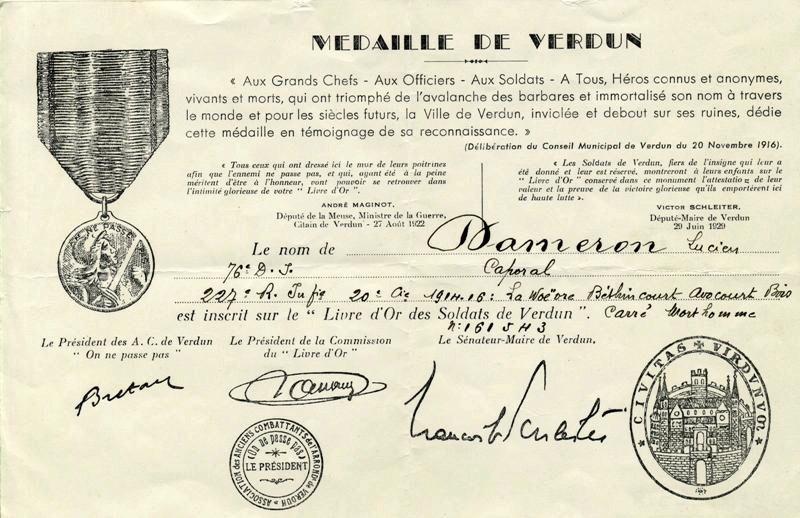 MEDAILLE DE VERDUN
« Aux Grands Chefs - Aux Officiers - Aux Soldats - A Tous, Héros connus et anonymes,
vivants et morts, qui ont triomphé de l'avalanche des barbares et immortalisé son nom à travers
le monde et pour les siècles futurs, la Ville de Verdun, inviolée et debout sur ses ruines, dédie
cette médaille en témoignage de sa reconnaissance. »
(Délibération du Conseil Municipal de Verdun du 20 Novembre 1916).
« Tous ceux qui ont dressé ici le mur de leurs poitrines
afin que l'ennemi ne passe pas, et qui, ayant été à la peine
méritent d'être à l'honneur, vont pouvoir se retrouver dans
l'intimité glorieuse de votre " Livre d'Or ".
ANDRÉ MAGINOT,
Député de la Meuse, Ministre de la Guerre,
Citain de Verdun - 27 Août 1922
« Les Soldats de Verdun, fiers de l'insigne qui leur a
été donné et leur est réservé, montreront à leurs enfants sur le
" Livre d'Or " conservé dans ce monument l'attestation de leur
valeur et la preuve de la victoire glorieuse qu'ils emportèrent ici
de haute lutte ».
VICTOR SCHLEITER,
Député-Maire de Verdun
29 Juin 1929
ON NE PASSE PAS
Le nom de Dameron Lucien
76e D. I. Caporal
227e R. Infie 20e Cie 1914-16: La Woëvre Béthincourt Avocourt Bois
est inscrit sur le " Livre d'Or des Soldats de Verdun ". Carré Morthomme
N° 161543
Le Président des A. C. de Verdun
" On ne passe pas "
Le Président de la Commission
du " Livre d'Or "
Le Sénateur-Maire de Verdun.
Breton
Schleiter
ASSOCIATION des ANCIENS COMBATTANTS de l'ARRONDt de VERDUN
(On ne passe pas)
LE PRÉSIDENT
CIVITAS VIRDUNUM